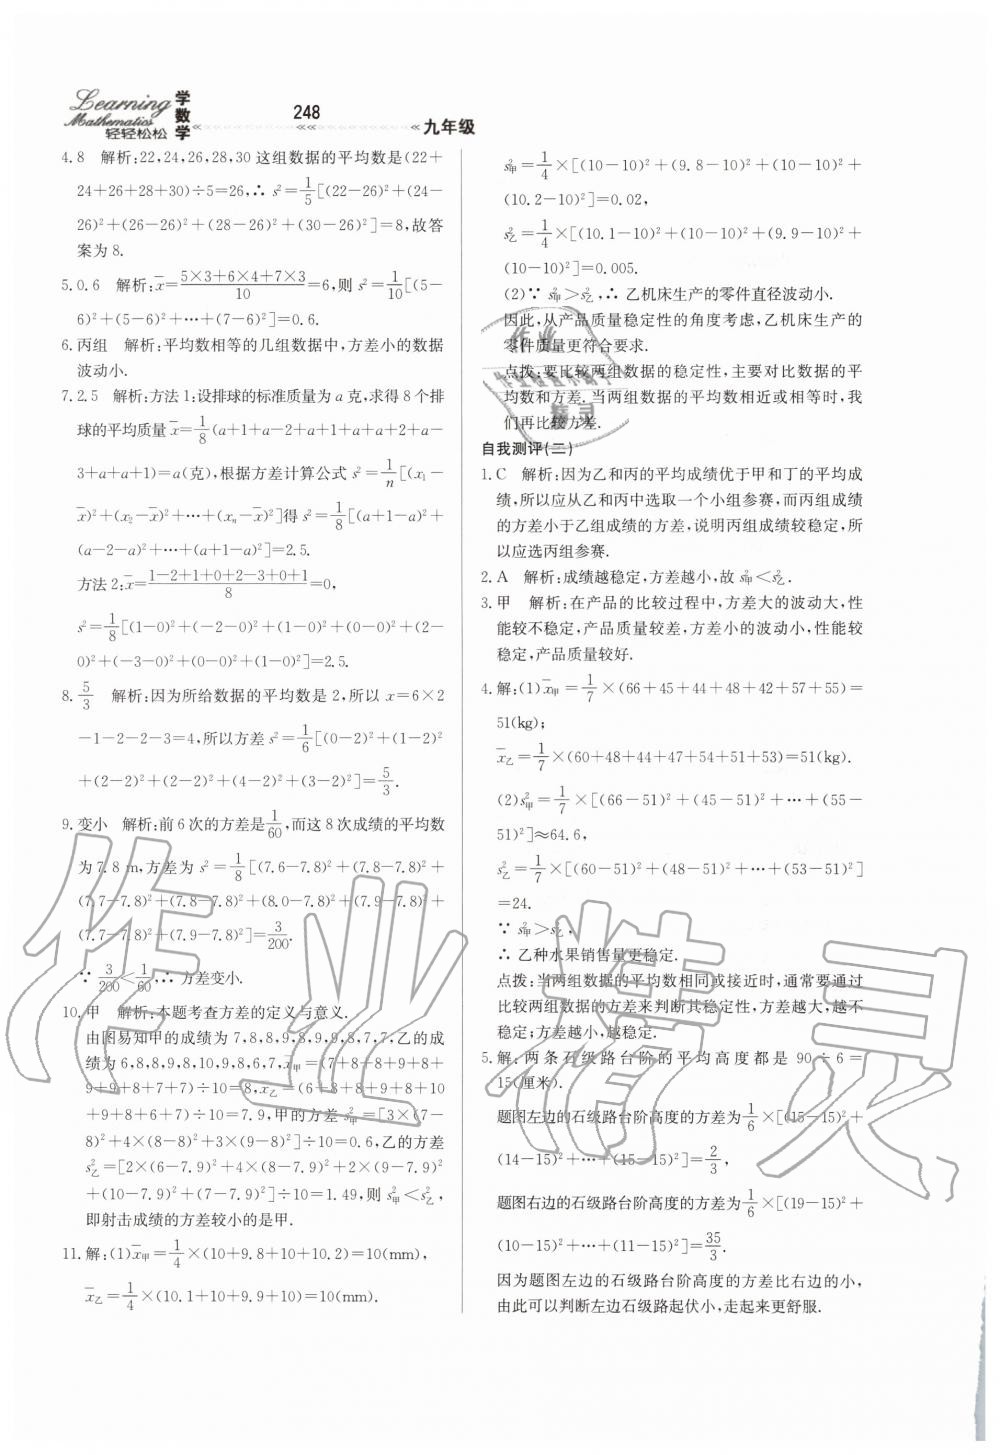 Learning
Mathematics
轻轻松松
学数学
248
九年级
4. 8　解析:22,24,26,28,30 这组数据的平均数是(22+
24+26+28+30)÷5=26,∴ s²=1/5[(22-26)²+(24-
26)²+(26-26)²+(28-26)²+(30-26)²]=8,故答
案为 8.
5. 0.6　解析:x̄=(5×3+6×4+7×3)/10=6,则 s²=1/10[(5-
6)²+(5-6)²+…+(7-6)²]=0.6.
6. 丙组　解析:平均数相等的几组数据中,方差小的数据
波动小.
7. 2.5　解析:方法 1:设排球的标准质量为 a 克,求得 8 个排
球的平均质量 x̄=1/8(a+1+a-2+a+1+a+a+2+a-
3+a+a+1)=a(克),根据方差计算公式 s²=1/n[(x₁-
x̄)²+(x₂-x̄)²+…+(xₙ-x̄)²]得 s²=1/8[(a+1-a)²+
(a-2-a)²+…+(a+1-a)²]=2.5.
方法 2:x̄=(1-2+1+0+2-3+0+1)/8=0,
s²=1/8[(1-0)²+(-2-0)²+(1-0)²+(0-0)²+(2-
0)²+(-3-0)²+(0-0)²+(1-0)²]=2.5.
8. 5/3　解析:因为所给数据的平均数是 2,所以 x=6×2
-1-2-2-3=4,所以方差 s²=1/6[(0-2)²+(1-2)²
+(2-2)²+(2-2)²+(4-2)²+(3-2)²]=5/3.
9. 变小　解析:前 6 次的方差是1/60,而这 8 次成绩的平均数
为 7.8 m,方差为 s²=1/8[(7.6-7.8)²+(7.8-7.8)²+
(7.7-7.8)²+(7.8-7.8)²+(8.0-7.8)²+(7.9-7.8)²+
(7.7-7.8)²+(7.9-7.8)²]=3/200.
∵ 3/200<1/60,∴ 方差变小.
10. 甲　解析:本题考查方差的定义与意义.
由图易知甲的成绩为 7,8,8,9,8,9,9,8,7,7;乙的成
绩为 6,8,8,9,8,10,9,8,6,7,x̄甲=(7+8+8+9+8+
9+9+8+7+7)÷10=8,x̄乙=(6+8+8+9+8+10
+9+8+6+7)÷10=7.9,甲的方差 s²甲=[3×(7-
8)²+4×(8-8)²+3×(9-8)²]÷10=0.6,乙的方差
s²乙=[2×(6-7.9)²+4×(8-7.9)²+2×(9-7.9)²
+(10-7.9)²+(7-7.9)²]÷10=1.49,则 s²甲<s²乙,
即射击成绩的方差较小的是甲.
11. 解:(1)x̄甲=1/4×(10+9.8+10+10.2)=10(mm),
x̄乙=1/4×(10.1+10+9.9+10)=10(mm).
s²甲=1/4×[(10-10)²+(9.8-10)²+(10-10)²+
(10.2-10)²]=0.02,
s²乙=1/4×[(10.1-10)²+(10-10)²+(9.9-10)²+
(10-10)²]=0.005.
(2)∵ s²甲>s²乙,∴ 乙机床生产的零件直径波动小.
因此,从产品质量稳定性的角度考虑,乙机床生产的
零件质量更符合要求.
点拨:要比较两组数据的稳定性,主要对比数据的平
均数和方差.当两组数据的平均数相近或相等时,我
们再比较方差.
自我测评(二)
1. C　解析:因为乙和丙的平均成绩优于甲和丁的平均成
绩,所以应从乙和丙中选取一个小组参赛,而丙组成绩
的方差小于乙组成绩的方差,说明丙组成绩较稳定,所
以应选丙组参赛.
2. A　解析:成绩越稳定,方差越小,故 s²甲<s²乙.
3. 甲　解析:在产品的比较过程中,方差大的波动大,性
能较不稳定,产品质量较差,方差小的波动小,性能较
稳定,产品质量较好.
4. 解:(1)x̄甲=1/7×(66+45+44+48+42+57+55)=
51(kg);
x̄乙=1/7×(60+48+44+47+54+51+53)=51(kg).
(2)s²甲=1/7×[(66-51)²+(45-51)²+…+(55-
51)²]≈64.6,
s²乙=1/7×[(60-51)²+(48-51)²+…+(53-51)²]
=24.
∵ s²甲>s²乙,
∴ 乙种水果销售量更稳定.
点拨:当两组数据的平均数相同或接近时,通常要通过
比较两组数据的方差来判断其稳定性,方差越大,越不
稳定;方差越小,越稳定.
5. 解:两条石级路台阶的平均高度都是 90÷6=
15(厘米).
题图左边的石级路台阶高度的方差为1/6×[(15-15)²+
(14-15)²+…+(15-15)²]=2/3,
题图右边的石级路台阶高度的方差为1/6×[(19-15)²+
(10-15)²+…+(11-15)²]=35/3.
因为题图左边的石级路台阶高度的方差比右边的小,
由此可以判断左边石级路起伏小,走起来更舒服.
作业精灵